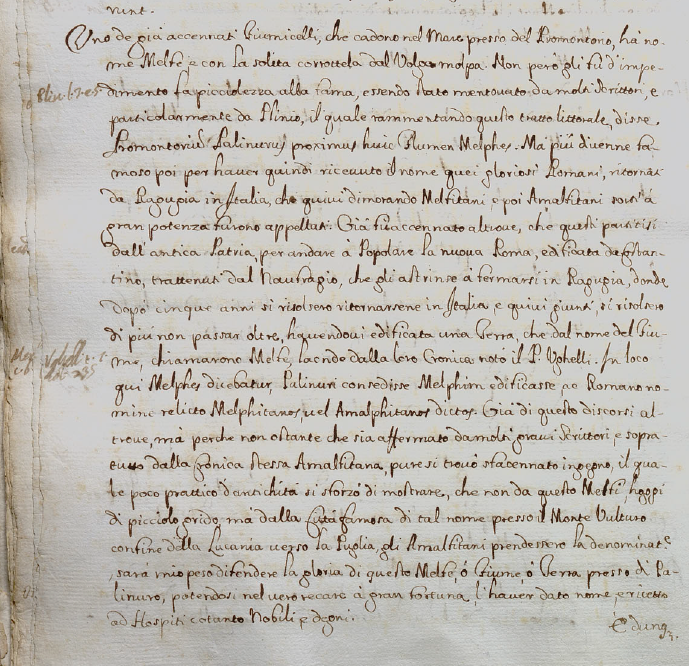 runt.
Uno de già accennati Fiumicelli, che cadono nel Mare presso del Promontorio, hà no-
me Melfe, e con la solita corrottela dal Volgo molpa. Non però gli fù d'impe-
dimento la picciolezza alla fama, essendo stato mentovato da molti Scrittori, e
particolarmente da Plinio, il quale rammentando questo tratto littorale, disse.
Promontoriũ Palinurus proximus huic Flumen Melphes. Ma più divenne fa-
moso poi per haver quindi ricevuto il nome quei gloriosi Romani, ritornati
da Ragugia in Italia, che quivi dimorando Melfitani, e poi Amalfitani sorti à
gran potenza furono appellati. Già fù accennato altrove, che questi partitisi
dall'antica Patria, per andare à Popolare la nuova Roma, edificata da Costan-
tino, trattenuti dal Naufragio, che gli astrinse à fermarsi in Ragugia, donde
dopò cinque anni si risolsero ritornarsene in Italia, e quivi giunti, si risolsero
di più non passar oltre, havendovi edificata una Terra, che dal nome del Fiu-
me, chiamarono Melfe, laonde dalla loro Cronica notò il P. Vghelli. In loco
qui Melphes dicebatur, Palinuri consedisse Melphim edificasse, ac Romano no-
mine relicto Melphitanos, vel Amalphitanos dictos. Già di questo discorsi al-
trove, mà perche non ostante che sia affermato da molti gravi Scrittori, e sopra-
tutto dalla Cronica stessa Amalfitana, pure si trovò sfacennato ingegno, il qua-
le poco prattico d'antichità si sforzò di mostrare, che non da questo Melfi, hoggi
di picciolo grido, mà dalla Città famosa di tal nome presso il Monte Vulturo
confine della Lucania verso la Puglia, gli Amalfitani prendessero la denominat.e
, sarà mio peso difendere la gloria di questo Melfe, ò Fiume, ò Terra presso di Pa-
linuro, potendosi nel vero recare à gran fortuna, l'haver dato nome, e ricetto
ad Hospiti cotanto Nobili, e degni.
E dunq.